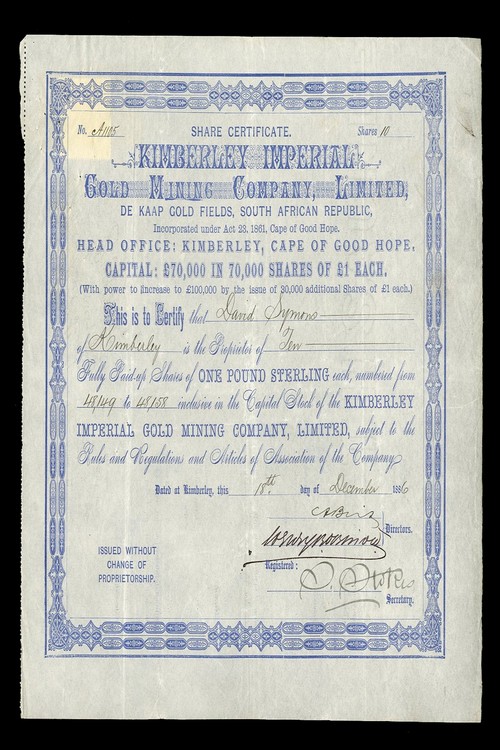 No. A1105 SHARE CERTIFICATE. Shares 10
KIMBERLEY IMPERIAL
GOLD MINING COMPANY, LIMITED,
DE KAAP GOLD FIELDS, SOUTH AFRICAN REPUBLIC,
Incorporated under Act 23, 1861, Cape of Good Hope.
HEAD OFFICE: KIMBERLEY, CAPE OF GOOD HOPE,
CAPITAL: £70,000 IN 70,000 SHARES OF £1 EACH.
(With power to increase to £100,000 by the issue of 30,000 additional Shares of £1 each.)
This is to Certify that David Symons
of Kimberley is the Proprietor of Ten
Fully Paid-up Shares of ONE POUND STERLING each, numbered from
48149 to 48158 inclusive in the Capital Stock of the KIMBERLEY
IMPERIAL GOLD MINING COMPANY, LIMITED, subject to the
Rules and Regulations and Articles of Association of the Company
Dated at Kimberley, this 18th. day of December 1886
Directors.
ISSUED WITHOUT
CHANGE OF
PROPRIETORSHIP.
Registered:
Stokes
Secretary.